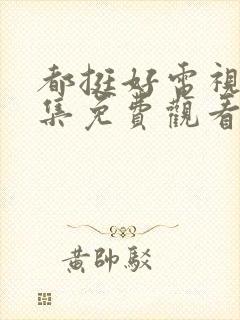 都挺好電視
集免費觀看
黃帥駁